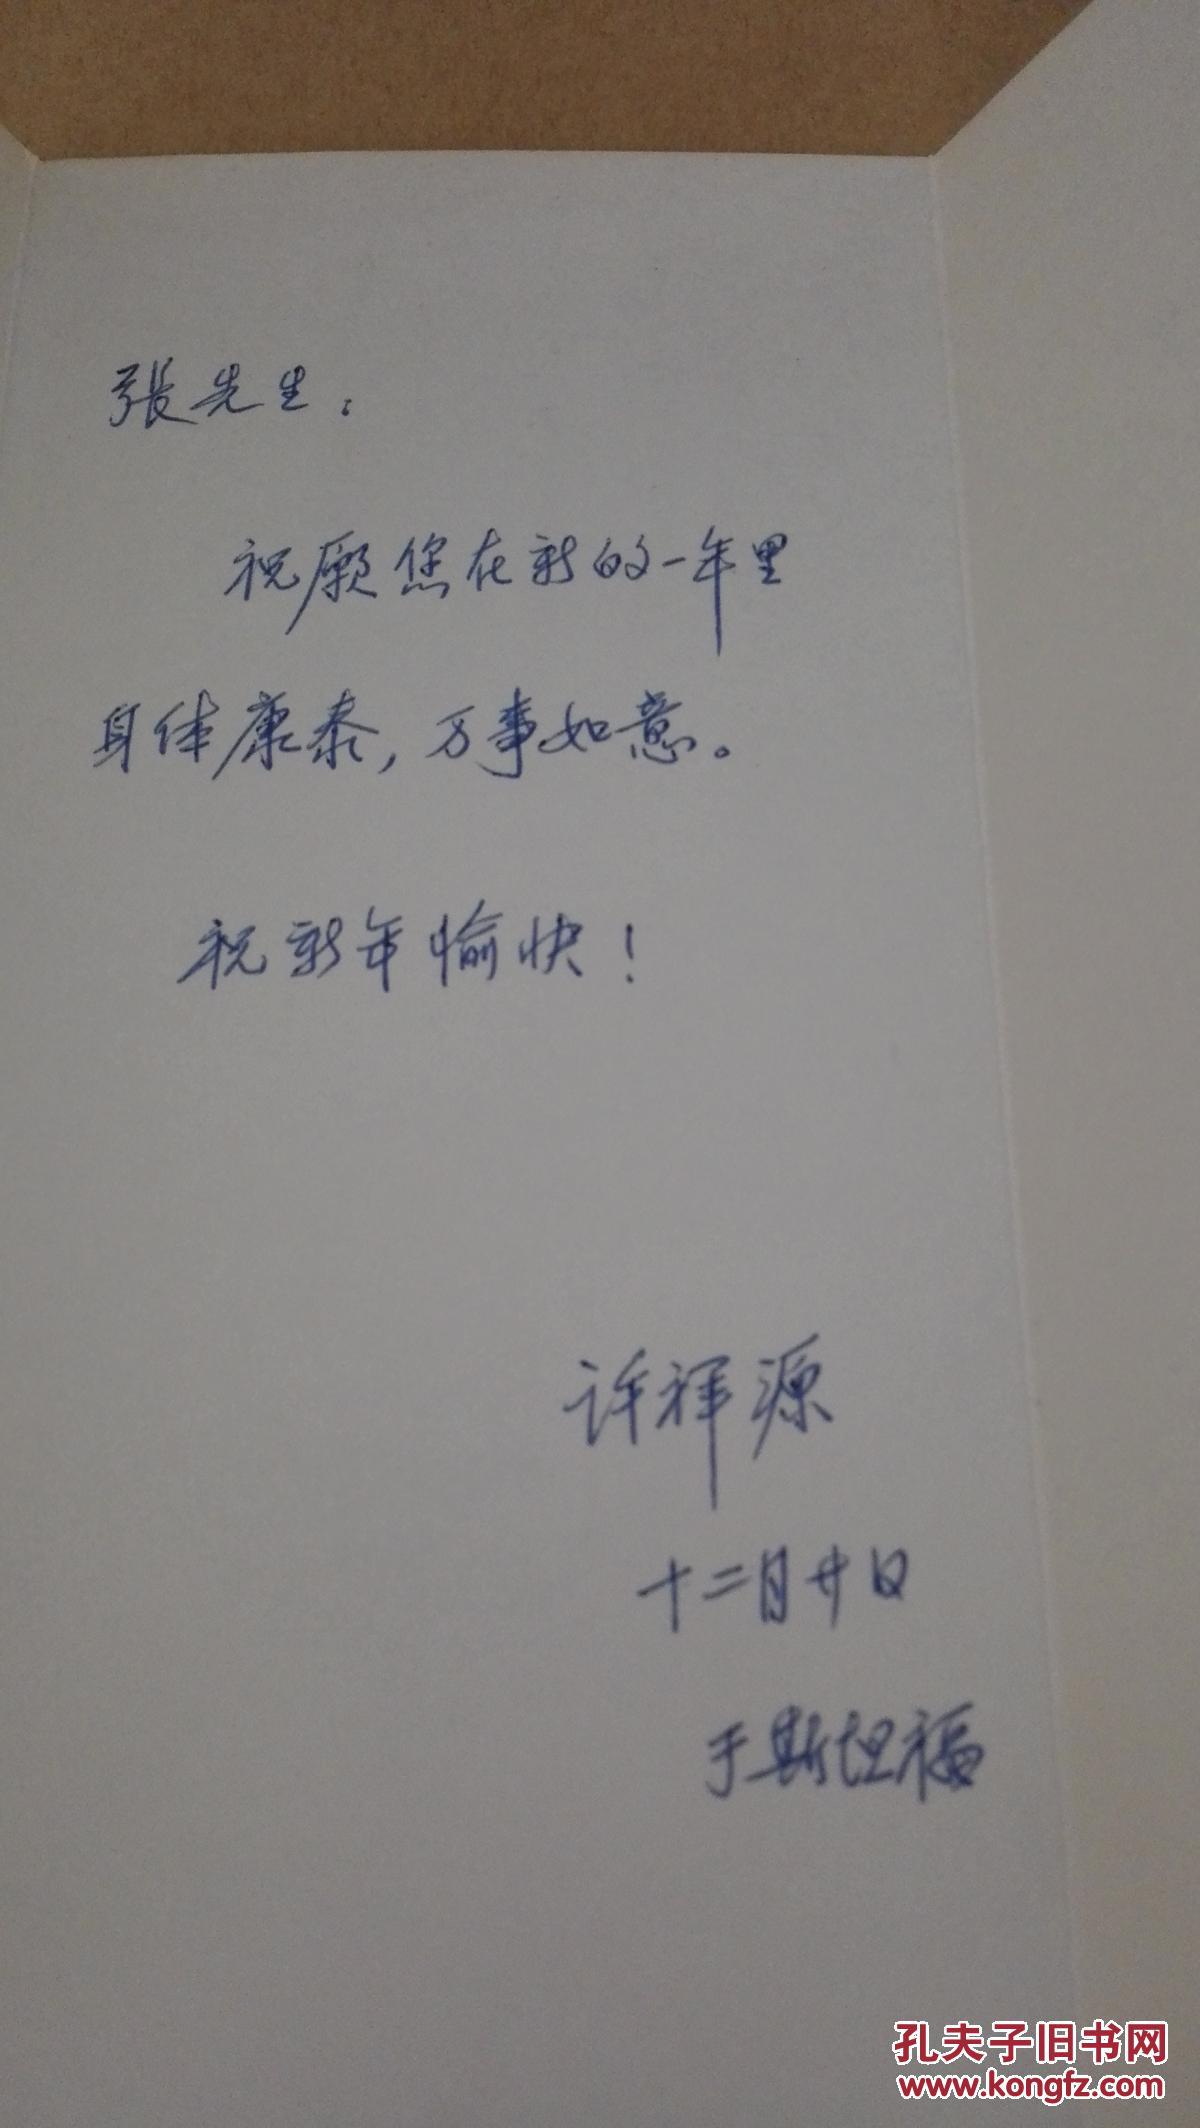 張先生：
祝愿您在新的一年里
身体康泰，万事如意。
祝新年愉快！
许祥源
十二月廿日
于斯坦福
孔夫子旧书网
www.kongfz.com